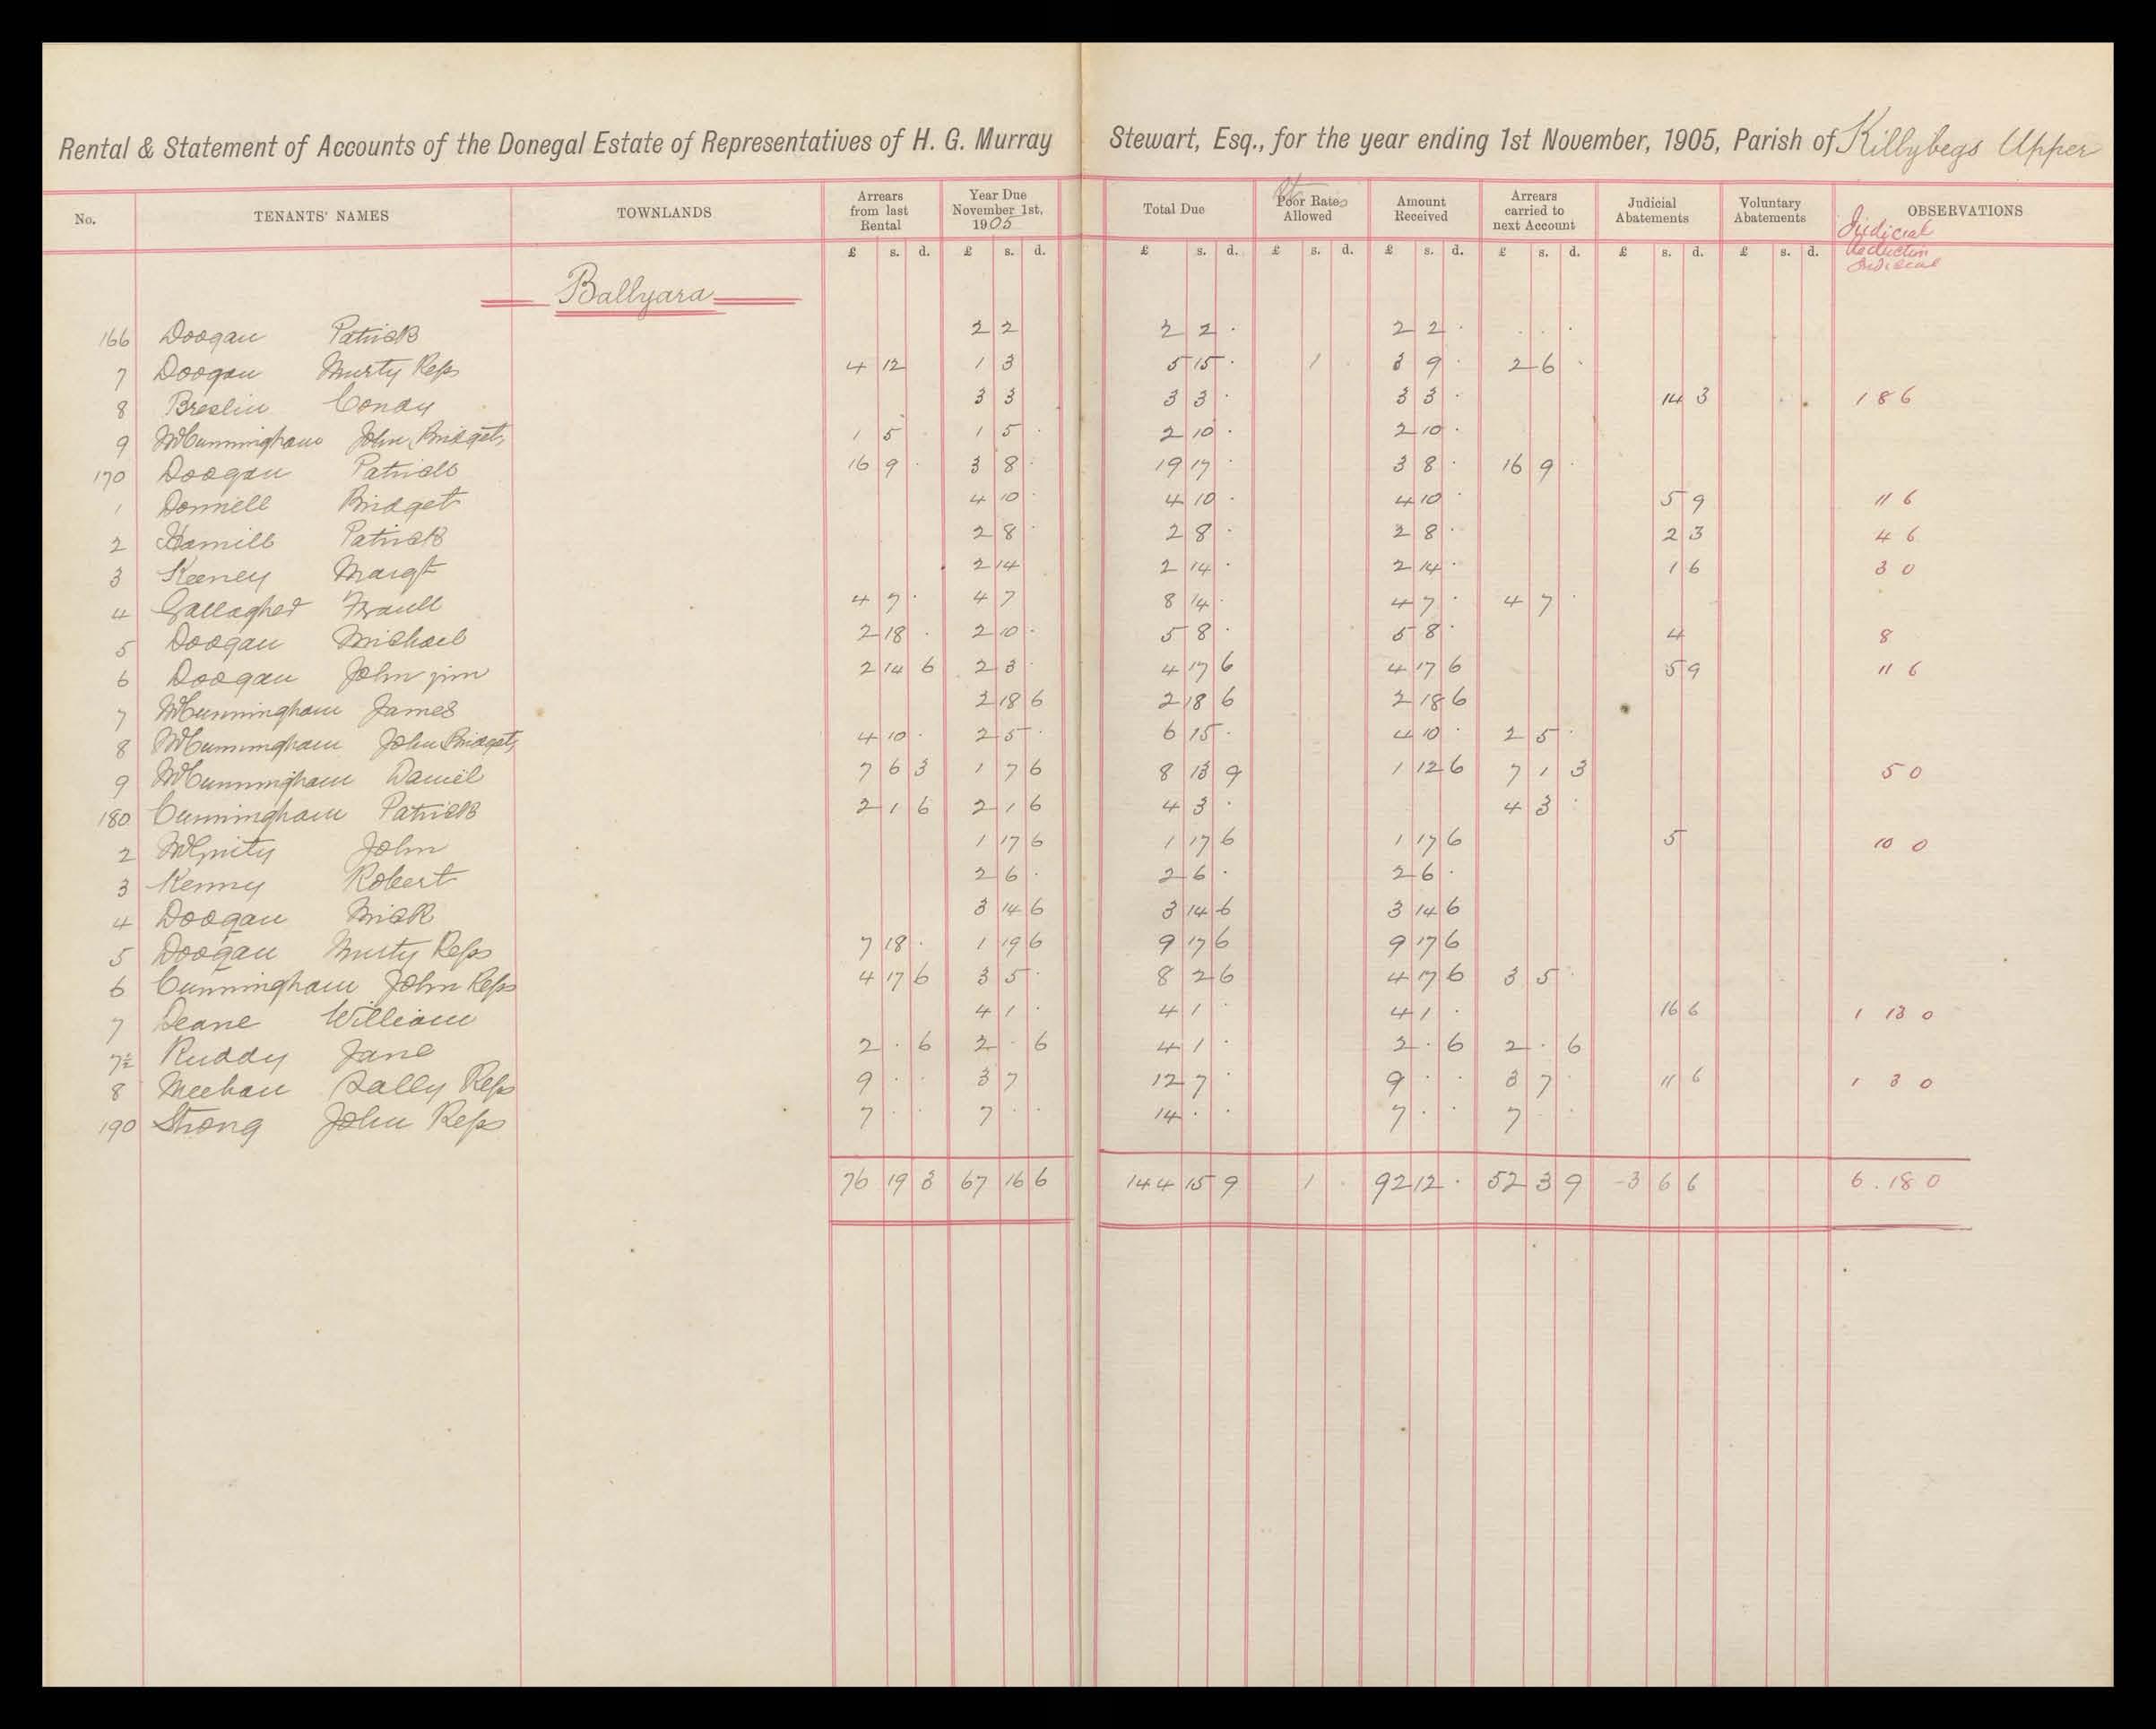 Rental & Statement of Accounts of the Donegal Estate of Representatives of H. G. Murray Stewart, Esq., for the year ending 1st November, 1905, Parish of Killybegs Upper
No. TENANTS' NAMES TOWNLANDS Arrears from last Rental Year Due November 1st, 1905 Total Due Poor Rates Allowed Amount Received Arrears carried to next Account Judicial Abatements Voluntary Abatements OBSERVATIONS
Judicial
£ s. d. £ s. d. £ s. d. £ s. d. £ s. d. £ s. d. £ s. d. £ s. d. Reduction
Judicial
Ballyara
166 Doogan Patrick 2 2 2 2 · 2 2 · · · ·
7 Doogan Murty Reps 4 12 1 3 5 15 · 1 3 9 · 2 6 ·
8 Breslin Condy 3 3 3 3 · 3 3 · 14 3 1 8 6
9 McCunningham John Bridget 1 5 1 5 · 2 10 · 2 10 ·
170 Doogan Patrick 16 9 · 3 8 · 19 17 · 3 8 · 16 9 ·
1 Donnell Bridget 4 10 · 4 10 · 4 10 · 5 9 11 6
2 Hamill Patrick 2 8 · 2 8 · 2 8 · 2 3 4 6
3 Keeney Margt 2 14 2 14 · 2 14 · 1 6 3 0
4 Gallagher 4 7 · 4 7 8 14 · 4 7 · 4 7 ·
5 Doogan Michael 2 18 · 2 10 · 5 8 · 5 8 · 4 8
6 Doogan John jim 2 14 6 2 3 · 4 17 6 4 17 6 5 9 11 6
7 McCunningham James 2 18 6 2 18 6 2 18 6
8 McCunningham John Bridget 4 10 · 2 5 · 6 15 · 4 10 · 2 5 ·
9 McCunningham Daniel 7 6 3 1 7 6 8 13 9 1 12 6 7 1 3 5 0
180 Cunningham Patrick 2 1 6 2 1 6 4 3 · 4 3 ·
2 McGinty John 1 17 6 1 17 6 1 17 6 5 10 0
3 Kenny Robert 2 6 · 2 6 · 2 6 ·
4 Doogan Mick 3 14 6 3 14 6 3 14 6
5 Doogan Murty Reps 7 18 · 1 19 6 9 17 6 9 17 6
6 Cunningham John Reps 4 17 6 3 5 · 8 2 6 4 17 6 3 5 ·
7 Deane William 4 1 · 4 1 · 4 1 · 16 6 1 13 0
7½ Ruddy Jane 2 · 6 2 · 6 4 1 · 2 · 6 2 · 6
8 Meehan Sally Reps 9 · · 3 7 12 7 · 9 · · 3 7 · 11 6 1 3 0
190 Strong John Reps 7 · · 7 · · 14 · · 7 · · 7 · ·
76 19 3 67 16 6 144 15 9 1 · 92 12 · 52 3 9 3 6 6 6 . 18 0